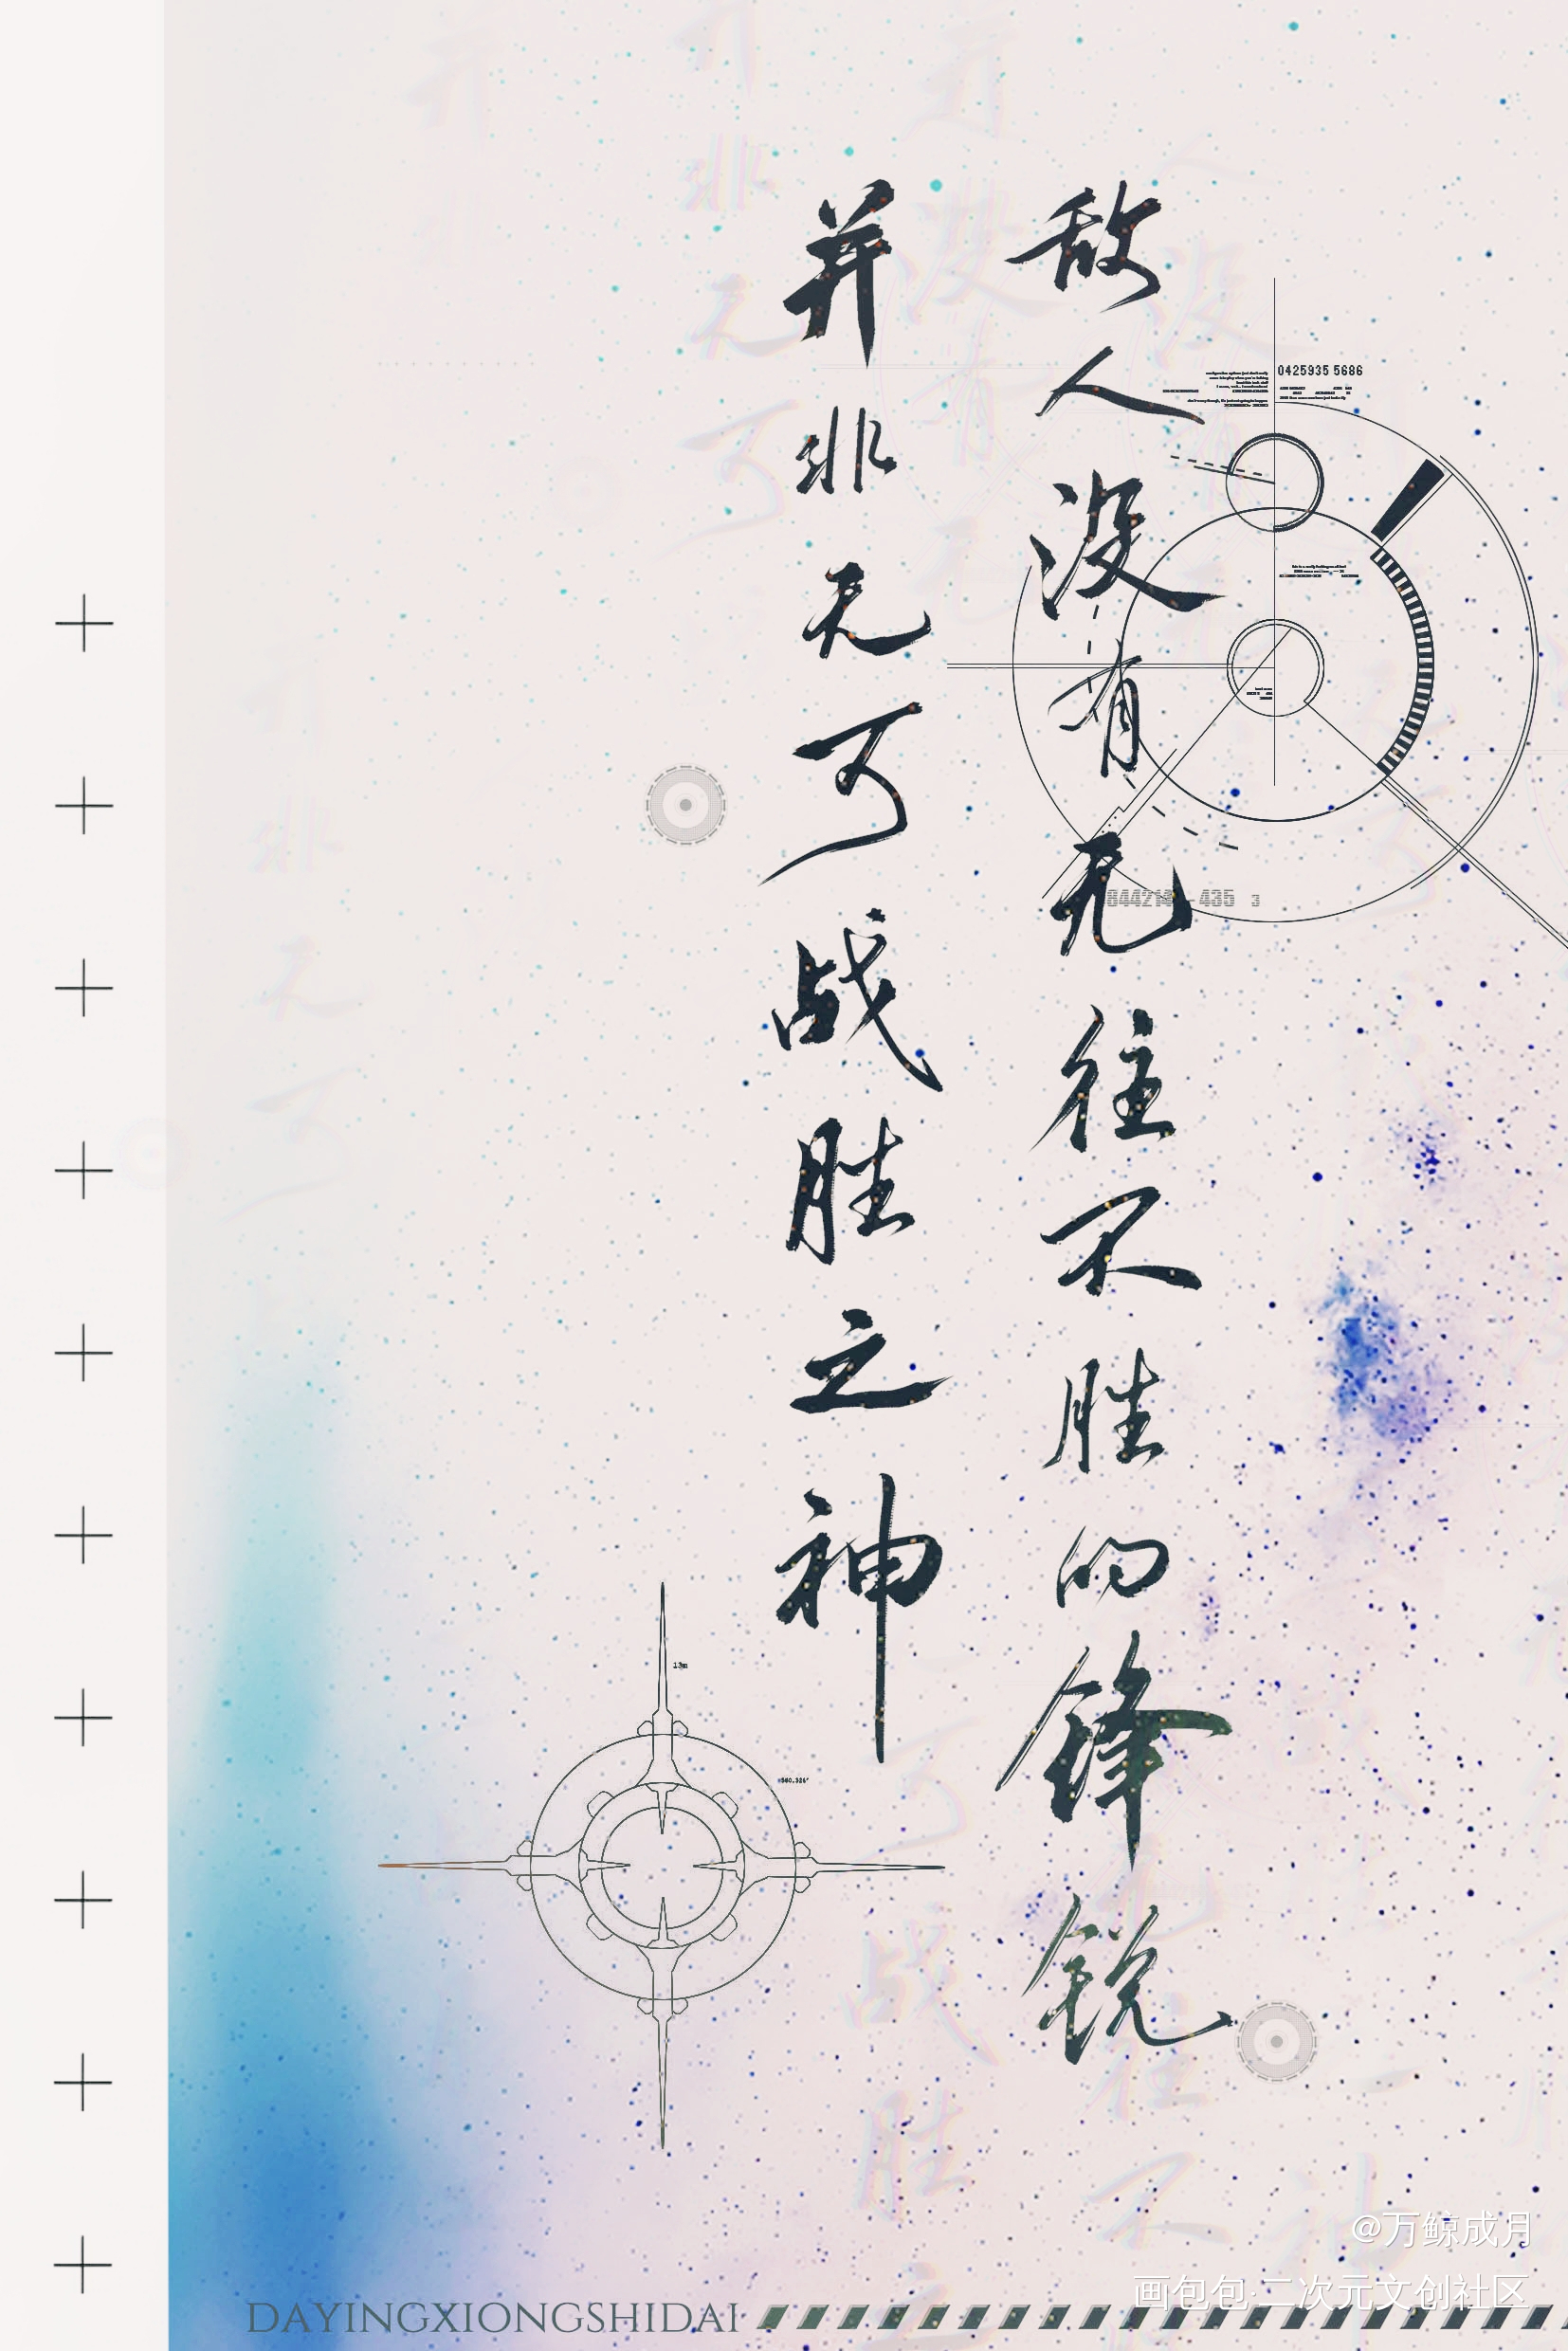 敌人没有无往不胜的锋锐
并非无可战胜之神
0425935 5686
435 3
13m
@万鲸成月
画包包·二次元文创社区
DAYINGXIONGSHIDAI